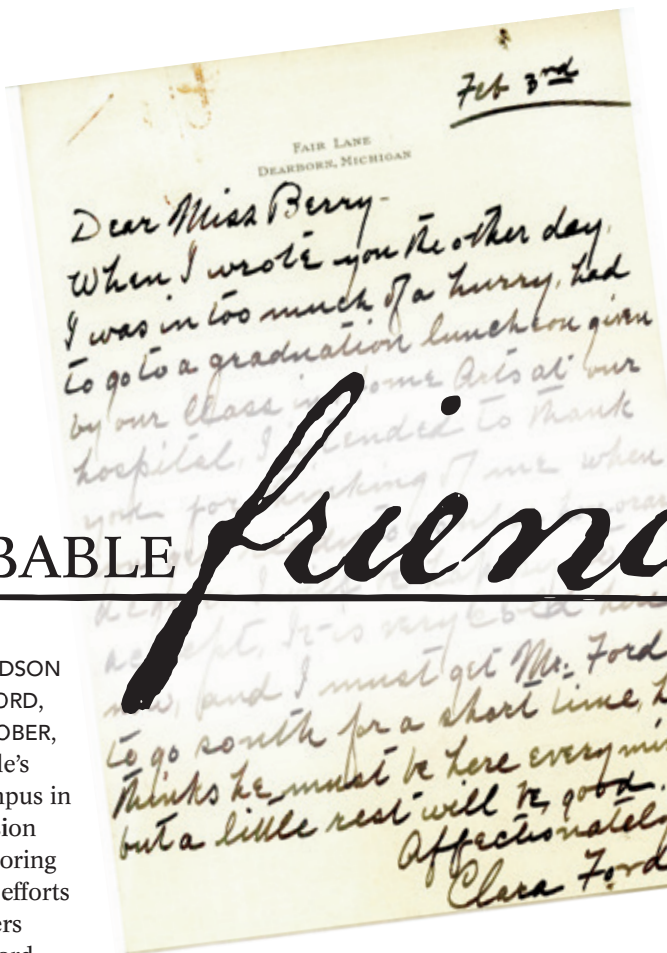 Feb 3rd
FAIR LANE
DEARBORN, MICHIGAN
Dear Miss Berry-
When I wrote you the other day,
I was in too much of a hurry, had
to go to a graduation luncheon given
by our Class in Home Arts at our
hospital, I intended to thank
you for thinking of me when
BABLE friend
accept, It is very cold here
now, and I must get Mr. Ford
to go south for a short time, h
thinks he must be here every min
but a little rest will be good.
Affectionately
Clara Ford
DSON
ORD,
OBER,
le's
npus in
sion
oring
efforts
ers